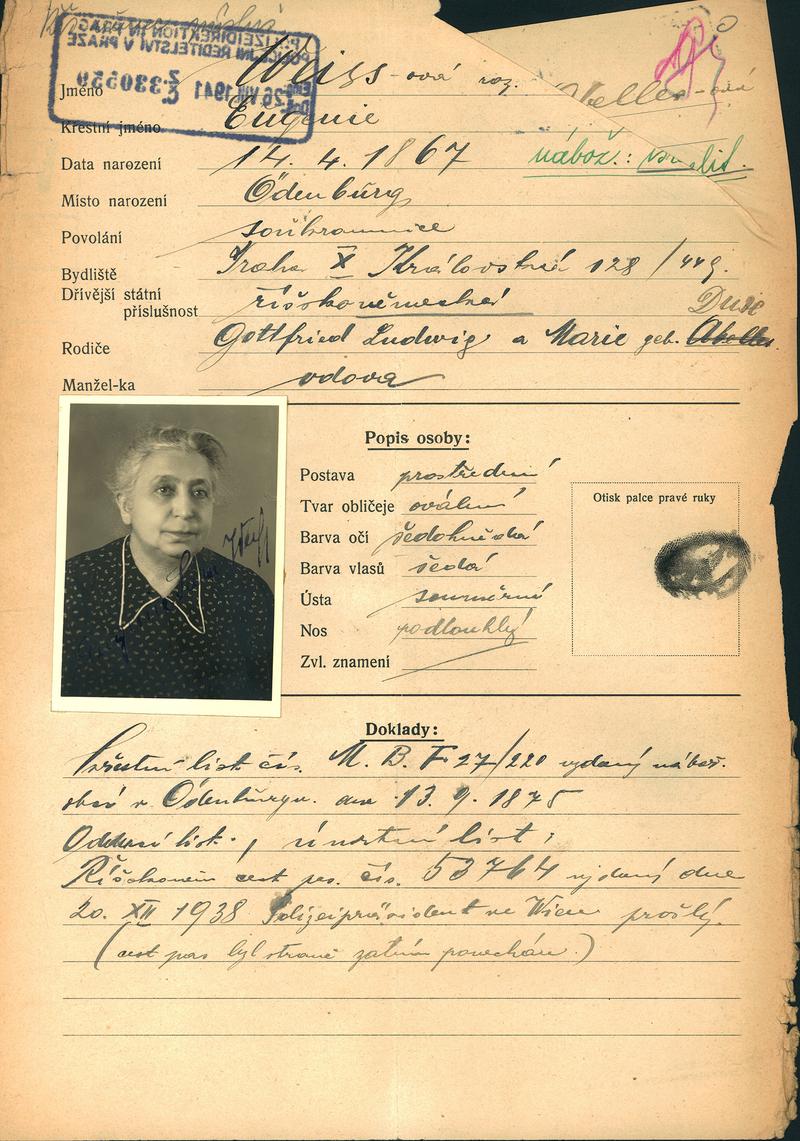 POLIZEIDIREKTION IN PRAG
POLICEJNÍ ŘEDITELSTVÍ V PRAZE
Eing. Došlo 26. VIII. 1941 Z. Č. 330559
Jméno Weiss-ová roz. Abelles-ová
Křestní jméno Eugenie
Data narození 14. 4. 1867 nábož.:
Místo narození Ödenburg
Povolání soukromnice
Bydliště Praha X Královská 128/449.
Dřívější státní příslušnost říšskoněmecká
Rodiče Gottfried Ludwig a Marie geb. Abelles
Manžel-ka vdova
Popis osoby:
Postava prostřední
Tvar obličeje oválný
Barva očí šedohnědá
Barva vlasů šedá
Ústa souměrná
Nos podlouhlý
Zvl. znamení
Otisk palce pravé ruky
Doklady:
Křestní list čís. M. B. F 27/220 vydaný nábož.
obcí v Ödenburgu. dne 13. 9. 1875
Oddací list, úmrtní list,
Říškoněm cest pas. čís. 53764 vydaný dne
20. XII 1938 Polizeipräsident ve Wien prošlý.
(cest pas byl straně zatím ponechán.)